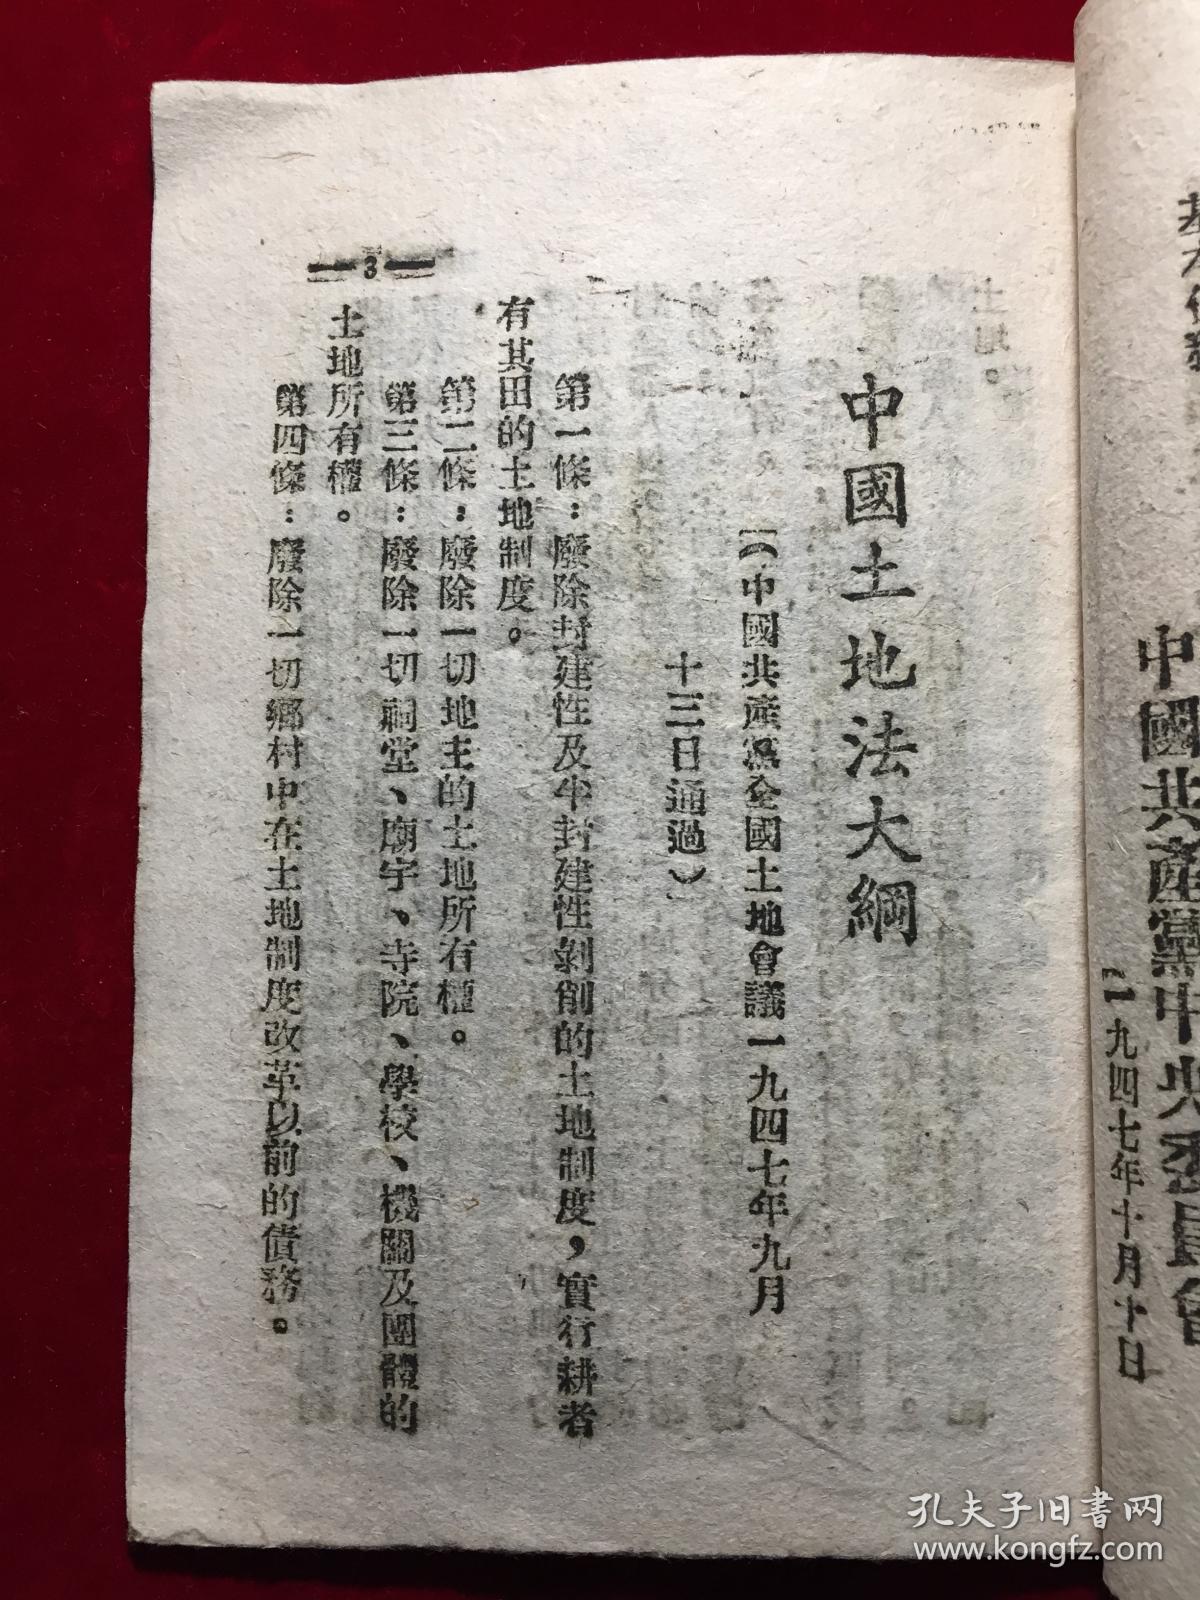 中國共產黨中央委員會
一九四七年十月十日
中國土地法大綱
（中國共產黨全國土地會議一九四七年九月
十三日通過）
第一條：廢除封建性及半封建性剝削的土地制度，實行耕者
有其田的土地制度。
第二條：廢除一切地主的土地所有權。
第三條：廢除一切祠堂、廟宇、寺院、學校、機關及團體的
土地所有權。
第四條：廢除一切鄉村中在土地制度改革以前的債務。
3
孔夫子旧书网
www.kongfz.com